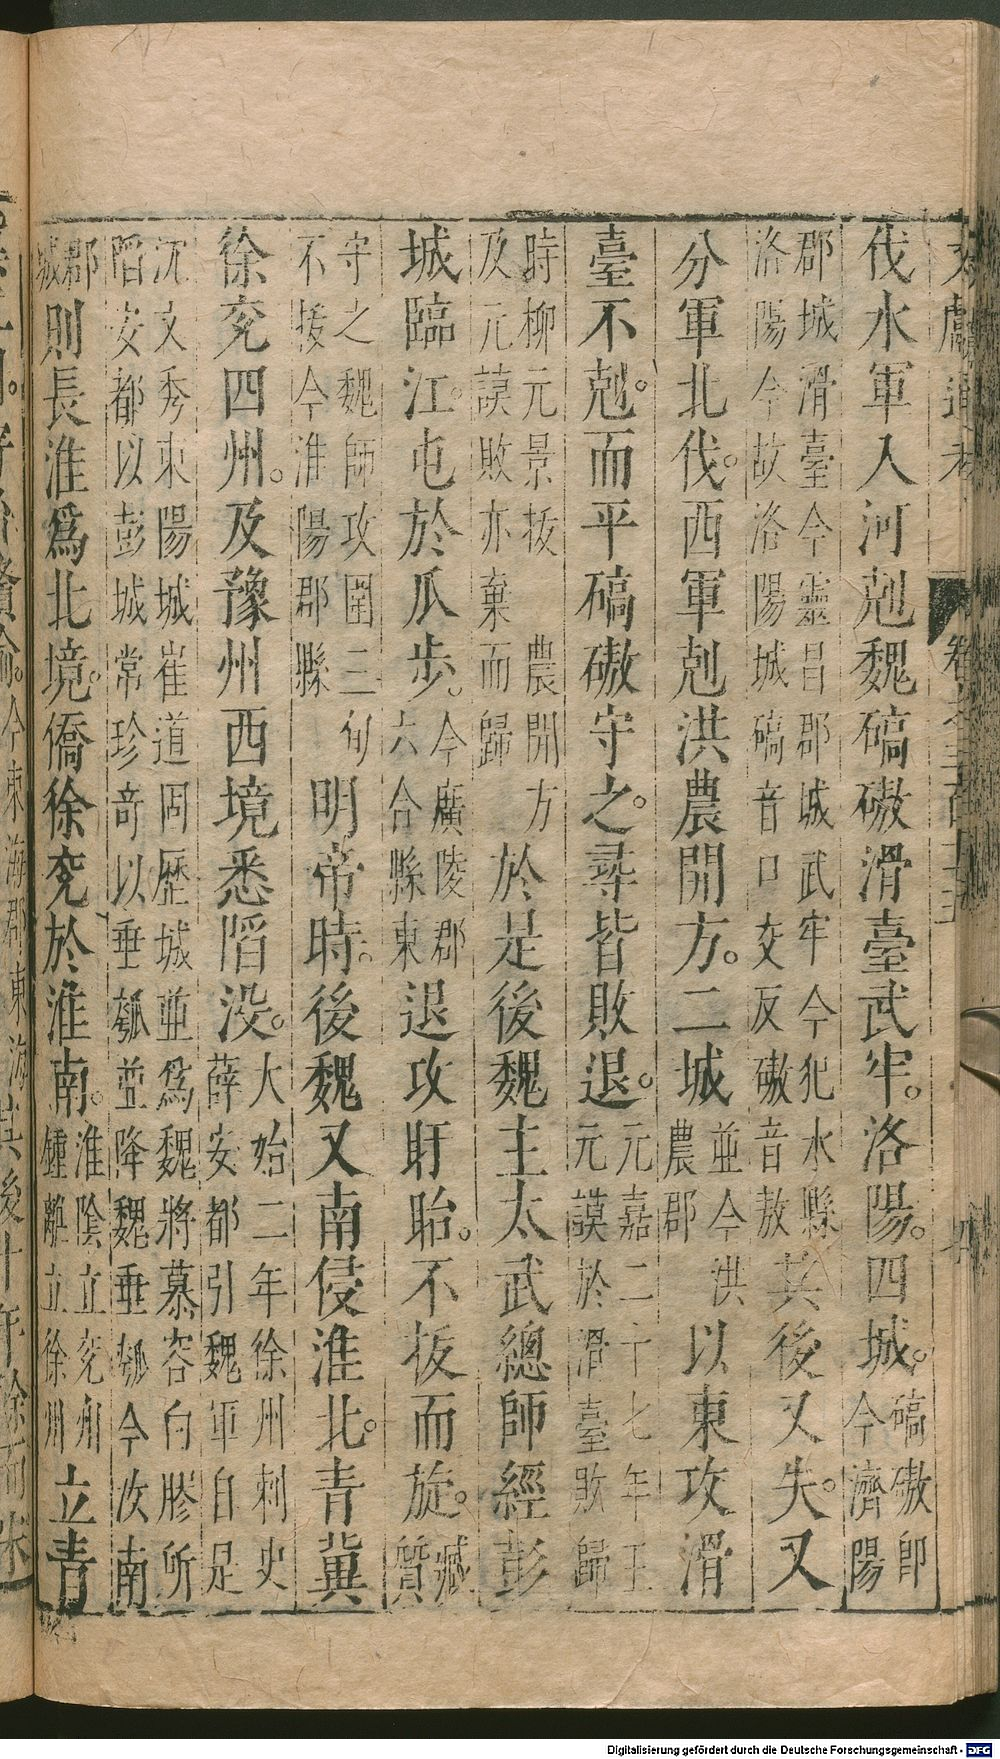 伐水軍入河剋魏碻磝滑臺武牢。洛陽。四城。碻磝即今濟陽
郡城滑臺今靈昌郡城武牢今汜水縣洛陽今故洛陽城碻音口交反磝音敖其後又失。又
分軍北伐。西軍剋洪農開方。二城並今洪農郡以東攻滑
臺不剋。而平碻磝守之。尋皆敗退。元嘉二十七年王元謨於滑臺敗歸
時柳元景拔農開方及元謨敗亦棄而歸於是後魏主太武總師經彭
城臨江。屯於瓜步。今廣陵郡六合縣東退攻盱眙。不拔而旋。臧質
守之魏師攻圍三旬不拔今淮陽郡縣明帝時。後魏又南侵淮北。青冀
徐兗四州。及豫州西境悉陷没。大始二年徐州刺史薛安都引魏軍自是
沉文秀東陽城崔道固歷城並為魏將慕容白膠所陷安都以彭城常珍奇以垂瓠並降魏垂瓠今汝南
郡城則長淮爲北境。僑徐兗於淮南。淮陰立兗州鍾離立徐州立青
Digitalisierung gefördert durch die Deutsche Forschungsgemeinschaft - DFG